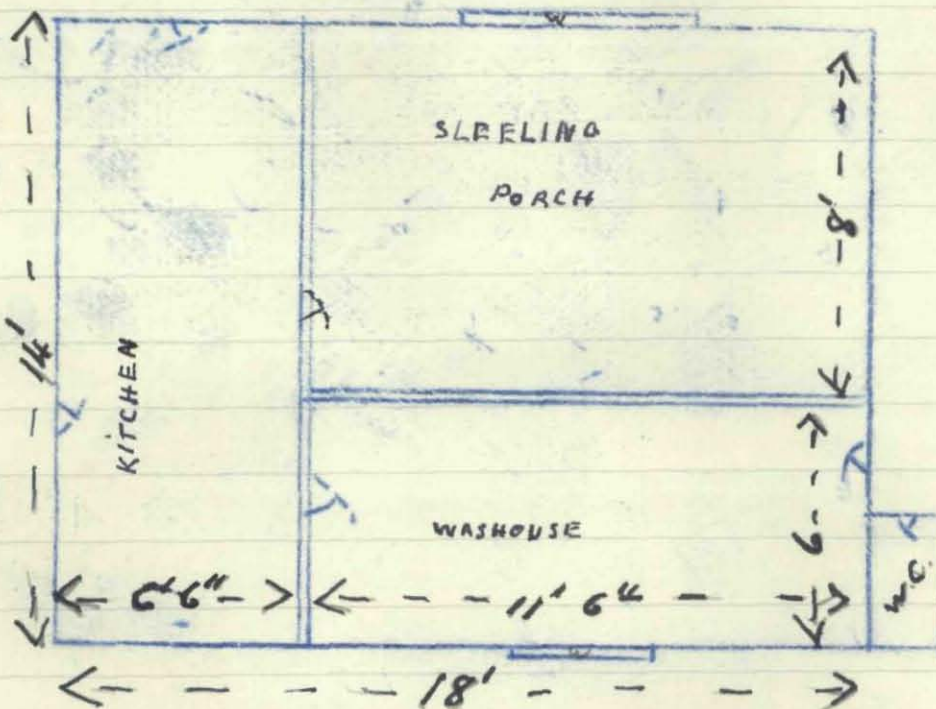 W
SLEELING
PORCH
8'
14'
KITCHEN
WASHOUSE
6
6' 6"
11' 6"
W.C.
W
18'